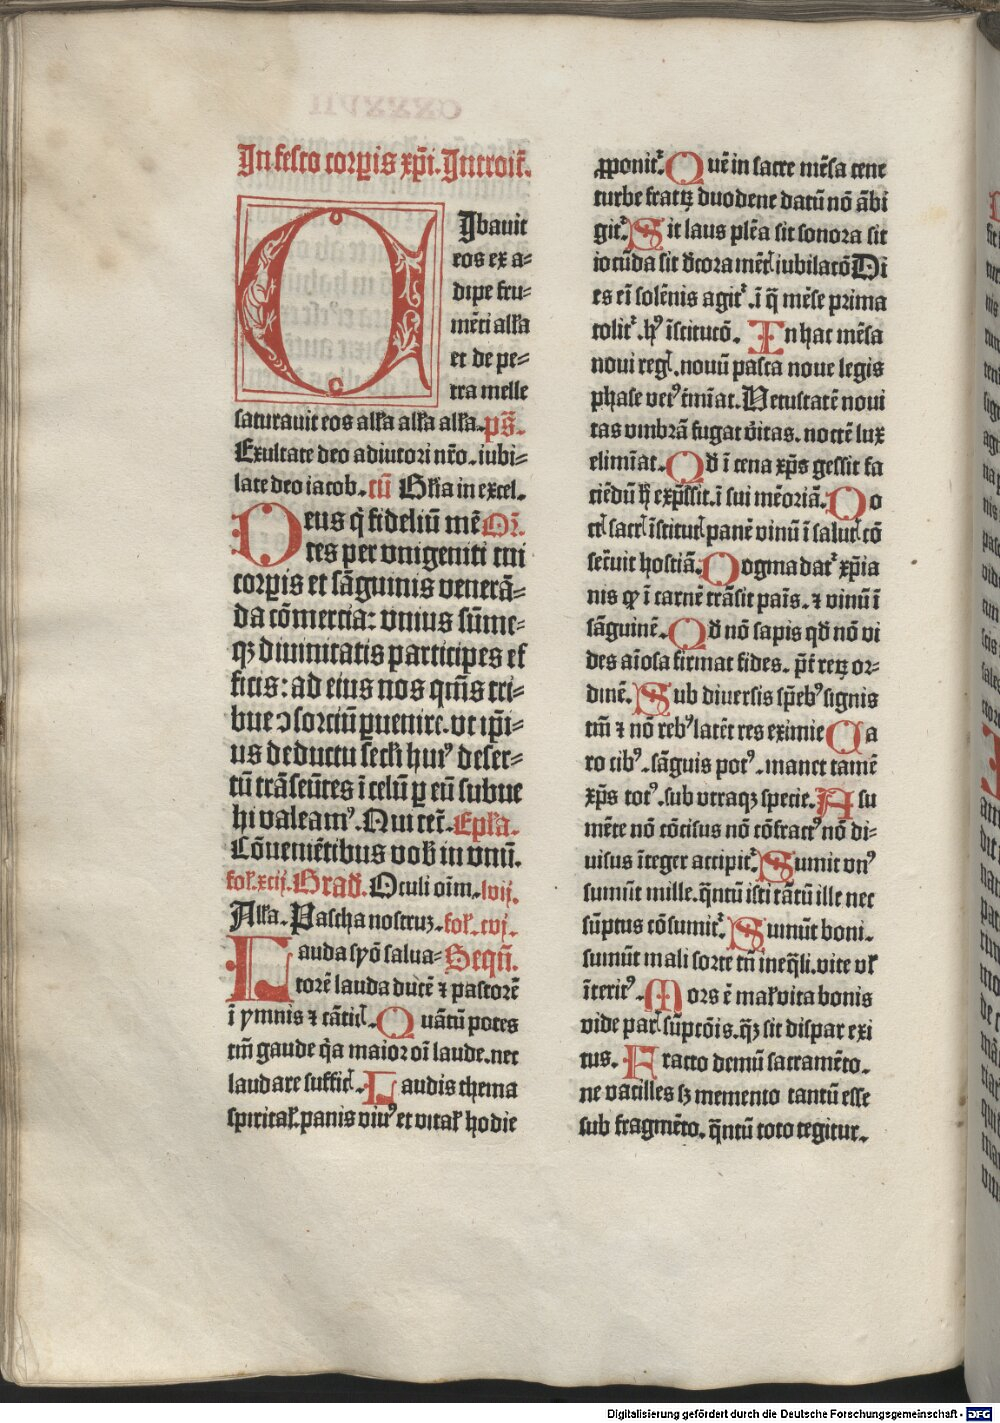 In festo corpꝑis xp̄i. Introit᷒.
CIbauit
eos ex a-
dipe fru-
mēti alľa
et de pe-
tra melle
saturauit eos alľa alľa alľa. ps̄.
Exultate deo adiutori nr̄o. iubi-
late deo iacob. cū Gľia in excel.
Deus q̇ fideliū mē Or̄.
tes per vnigeniti tui
corpꝑis et sāguinis venerā-
da cōmercia: vnius sūme-
qꝫ diuinitatis participes ef
ficis: ad eius nos qm̄s tri-
bue ↄsorciū ꝑuenire. vt ip̄i-
us deductu secľi huiꝰ deser-
tū trāseūtes ī celū ꝑ eū subue
hi valeamꝰ. Qui tec̄. Epľa.
Cōueniētibus vob̄ in vnū.
foľ. xcij. Grad̄. Oculi oīm. lvij.
Alľa. Pascha nostruꝫ. foľ. cvj.
Lauda syō salua- Seqn̄.
torē lauda ducē ⁊ pastorē
ī ymnis ⁊ cātiꝭ. Quātū potes
tm̄ gaude q̇a maior oī laude. nec
laudare sufficꝭ. Laudis thema
spiritaľ. panis viuꝰ et vitaľ hodie
ꝓponit᷒. Quē in sacre mēsa cene
turbe fratꝝ duodene datū nō ābi
git᷒. Sit laus plēa sit sonora sit
iocūda sit dcora mēt̄ꝭ iubilacō Di
es eī solēnis agit᷒. ī q̄ mēse prima
colit᷒. hꝰ īstitucō. In hac mēsa
noui regꝭ. nouū pasca noue legis
phase vetꝰ t̄minat. Vetustatē noui
tas vmbrā fugat v̄itas. noctē lux
elimīat. Qd̄ ī cena xp̄s gessit fa
ciēdū h̄ exp̄ssit. ī sui mēoriā. Do
ctꝭ sacrꝭ īstitutꝭ panē vinū ī salutꝭ cō
sec̄uit hostiā. Dogma dat᷒ xp̄ia
nis ꝙ ī carnē trāsit paīs. ⁊ vinū ī
sāguinē. Qd̄ nō sapis qd̄ nō vi
des aīosa firmat fides. p̄t reꝝ or-
dinē. Sub diuersis sp̄ebꝰ signis
tm̄ ⁊ nō rebꝰ latēt res eximie Ca
ro cibꝰ. sāguis potꝰ. manet tamē
xp̄s totꝰ. sub vtraqꝫ specie. A su
mēte nō cōcisus nō cōfractꝰ nō di-
uisus īteger accipit᷒. Sumit vnꝰ
sumūt mille. q̄ntū isti tātū ille nec
sūptus cōsumit᷒. Sumūt boni.
sumūt mali sorte tn̄ ineq̄li. vite vľ
īteritꝰ. Mors ē maľ vita bonis
vide parꝭ sūptōis. q̄ꝫ sit dispar exi
tus. Fracto demū sacramēto.
ne vacilles sꝫ memento tantū esse
sub fragmēto. q̄ntū toto tegitur.
Digitalisierung gefördert durch die Deutsche Forschungsgemeinschaft - DFG